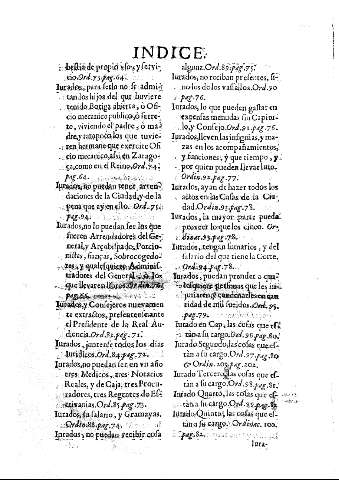 INDICE.
bestia de propio uso, y servi-
cio. Ord. 73. pag. 64.
Iurados, para serlo no se admi-
tan los hijos del que huviere
tenido Botiga abierta, ò Ofi-
cio mecanico publico, ò secre-
to, viviendo el padre, ò ma-
dre, y tampoco los que tuvie-
ren hermano que exercite Ofi
cio mecanico, assi en Zarago-
ça, como en el Reino. Ord. 74.
pag. 60.
Iurados, no puedan tener arren-
daciones de la Ciudad, y de la
pena que ay en ello. Ord. 75.
pag. 94.
Iurados, no lo puedan ser los que
fueren Arrendadores del Ge-
neral, y Arçobispado, Porcio-
nistas, fianças, Sobrecogedo-
res, y qualesquiere Adminis-
tradores del General, ò los
que llevaren libros
Iurados, y Consejeros nuevamen
te extractos, presenten ante
el Presidente de la Real Au-
diencia. Ord. 82. pag. 72.
Iurados, juntense todos los dias
Iuridicos. Ord. 84. pag. 72.
Iurados, no puedan ser en un año
tres Medicos, tres Notarios
Reales, y de Caja, tres Procu-
radores, tres Regentes de Es-
crivanias. Ord. 85. pag. 73.
Iurados, su salario, y Gramayas.
Ordin. 88. pag. 74.
Iurados, no puedan recibir cosa
alguna. Ord. 89. pag. 75.
Iurados, no reciban presentes, si-
no los de los vassallos. Ord. 90
pag. 76.
Iurados, lo que pueden gastar en
expensas menudas sin Capitu-
lo, y Consejo. Ord. 91. pag. 76.
Iurados, lleven las insignias, y ma-
zas en los acompañamientos,
y funciones, y que tiempo, y
por quien pueden llevar luto.
Ordin. 92. pag. 77.
Iurados, ayan de hazer todos los
actos en las Casas de la Ciu-
dad. Ordin. 93. pag. 78.
Iurados, la mayor parte pueda
proveer lo que los cinco. Or-
dinac. 95. pag. 78.
Iurados, tengan lunarios, y del
salario del que tiene la Corte.
Ord. 94. pag. 78.
Iurados, puedan prender a qua-
lesquiere personas que les in-
juriaren
ridad de mil sueldos. Ord. 95.
pag. 79.
Iurado en Cap, las cosas que es-
tan a su cargo. Ord. 96. pag. 80.
Iurado Segundo, las cosas que es-
tàn a su cargo. Ord. 97. pag. 80
& Ordin. 203. pag. 202.
Iurado Tercero, las cosas que es-
tàn a su cargo. Ord. 98. pag. 81.
Iurado Quarto, las cosas que es-
tàn a su cargo. Ord. 99. pag. 82
Iurado Quinto, las cosas que es-
tàn a su cargo. Ordinac. 100.
pag. 82.
Iura-